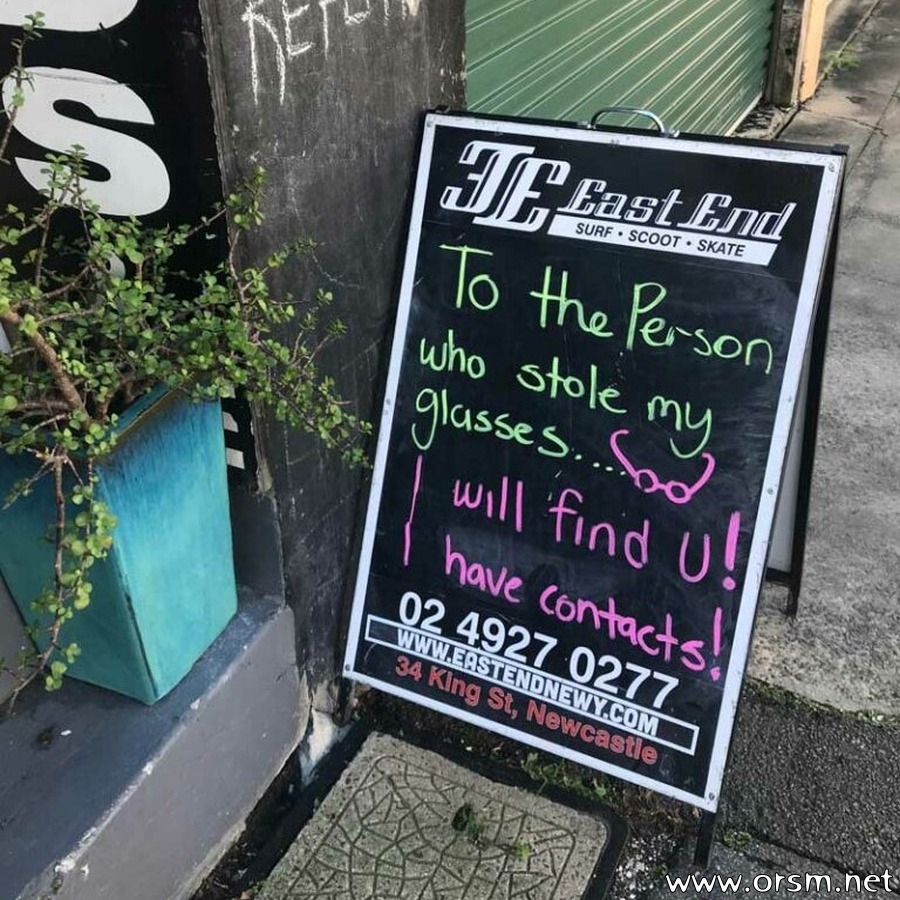 S
East End
SURF • SCOOT • SKATE
To the Person
who stole my
glasses.....
I will find U!
I have contacts!
02 4927 0277
WWW.EASTENDNEWY.COM
34 King St, Newcastle
www.orsm.net